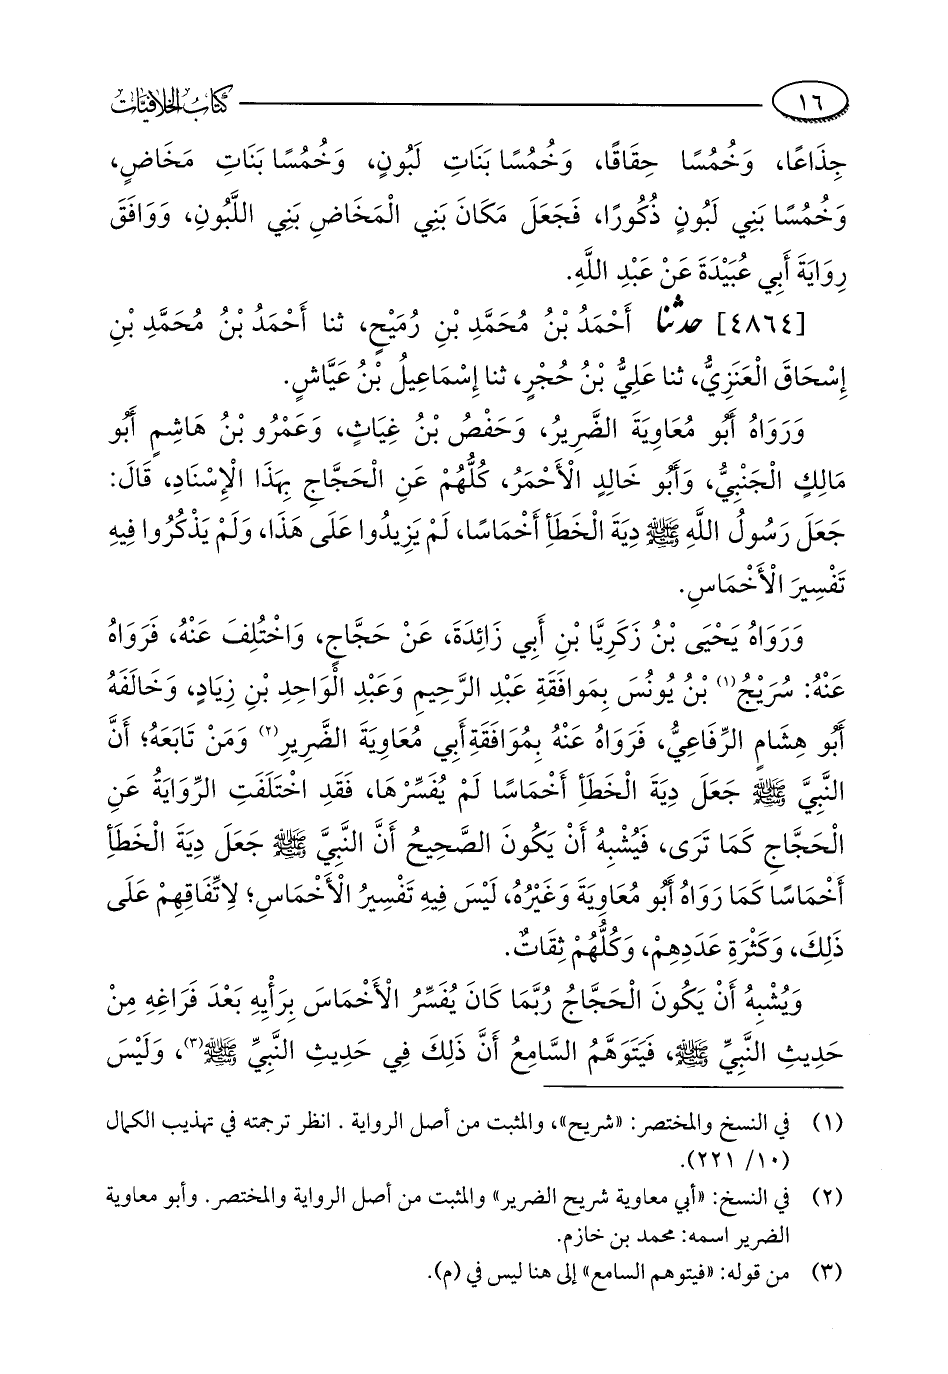 ١٦
كتاب الخلافيات
جِذَاعًا، وَخُمُسًا حِقَاقًا، وَخُمُسًا بَنَاتِ لَبُونٍ، وَخُمُسًا بَنَاتِ مَخَاضٍ،
وَخُمُسًا بَنِي لَبُونٍ ذُكُورًا، فَجَعَلَ مَكَانَ بَنِي الْمَخَاضِ بَنِي اللَّبُونِ، وَوَافَقَ
رِوَايَةَ أَبِي عُبَيْدَةَ عَنْ عَبْدِ اللَّهِ.
[٤٨٦٤] حدثنا أَحْمَدُ بْنُ مُحَمَّدِ بْنِ رُمَيْحٍ، ثنا أَحْمَدُ بْنُ مُحَمَّدِ بْنِ
إِسْحَاقَ الْعَنَزِيُّ، ثنا عَلِيُّ بْنُ حُجْرٍ، ثنا إِسْمَاعِيلُ بْنُ عَيَّاشٍ.
وَرَوَاهُ أَبُو مُعَاوِيَةَ الضَّرِيرُ، وَحَفْصُ بْنُ غِيَاثٍ، وَعَمْرُو بْنُ هَاشِمٍ أَبُو
مَالِكٍ الْجَنْبِيُّ، وَأَبُو خَالِدٍ الْأَحْمَرُ، كُلُّهُمْ عَنِ الْحَجَّاجِ بِهَذَا الْإِسْنَادِ، قَالَ:
جَعَلَ رَسُولُ اللَّهِ ﷺ دِيَةَ الْخَطَأِ أَخْمَاسًا، لَمْ يَزِيدُوا عَلَى هَذَا، وَلَمْ يَذْكُرُوا فِيهِ
تَفْسِيرَ الْأَخْمَاسِ.
وَرَوَاهُ يَحْيَى بْنُ زَكَرِيَّا بْنِ أَبِي زَائِدَةَ، عَنْ حَجَّاجٍ، وَاخْتُلِفَ عَنْهُ، فَرَوَاهُ
عَنْهُ: سُرَيْجُ(١) بْنُ يُونُسَ بِمَوافَقَةِ عَبْدِ الرَّحِيمِ وَعَبْدِ الْوَاحِدِ بْنِ زِيَادٍ، وَخَالَفَهُ
أَبُو هِشَامٍ الرِّفَاعِيُّ، فَرَوَاهُ عَنْهُ بِمُوَافَقَةِ أَبِي مُعَاوِيَةَ الضَّرِيرِ(٢) وَمَنْ تَابَعَهُ؛ أَنَّ
النَّبِيَّ ﷺ جَعَلَ دِيَةَ الْخَطَأِ أَخْمَاسًا لَمْ يُفَسِّرْهَا، فَقَدِ اخْتَلَفَتِ الرِّوَايَةُ عَنِ
الْحَجَّاجِ كَمَا تَرَى، فَيُشْبِهُ أَنْ يَكُونَ الصَّحِيحُ أَنَّ النَّبِيَّ ﷺ جَعَلَ دِيَةَ الْخَطَأِ
أَخْمَاسًا كَمَا رَوَاهُ أَبُو مُعَاوِيَةَ وَغَيْرُهُ، لَيْسَ فِيهِ تَفْسِيرُ الْأَخْمَاسِ؛ لِاتِّفَاقِهِمْ عَلَى
ذَلِكَ، وَكَثْرَةِ عَدَدِهِمْ، وَكُلُّهُمْ ثِقَاتٌ.
وَيُشْبِهُ أَنْ يَكُونَ الْحَجَّاجُ رُبَّمَا كَانَ يُفَسِّرُ الْأَخْمَاسَ بِرَأْيِهِ بَعْدَ فَرَاغِهِ مِنْ
حَدِيثِ النَّبِيِّ ﷺ، فَيَتَوَهَّمُ السَّامِعُ أَنَّ ذَلِكَ فِي حَدِيثِ النَّبِيِّ ﷺ(٣)، وَلَيْسَ
(١) في النسخ والمختصر: «شريح»، والمثبت من أصل الرواية . انظر ترجمته في تهذيب الكمال
(١٠/ ٢٢١).
(٢) في النسخ: «أبي معاوية شريح الضرير» والمثبت من أصل الرواية والمختصر. وأبو معاوية
الضرير اسمه: محمد بن خازم.
(٣) من قوله: «فيتوهم السامع» إلى هنا ليس في (م).